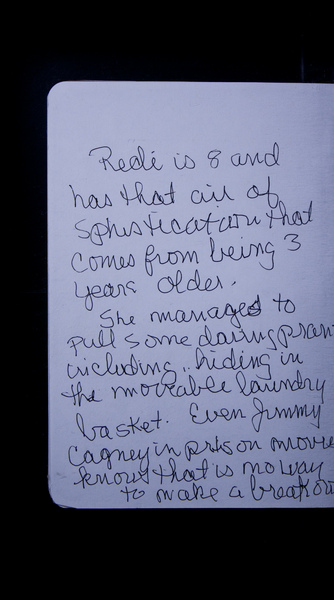 Redé is 8 and
has that air of
Sphistication that
comes from being 3
years older.
She manages to
pull some daring pran
including.. hiding in
the moveable laundry
basket. Even Jimmy
Cagney in prison movie
knows that is no way
to make a breakou